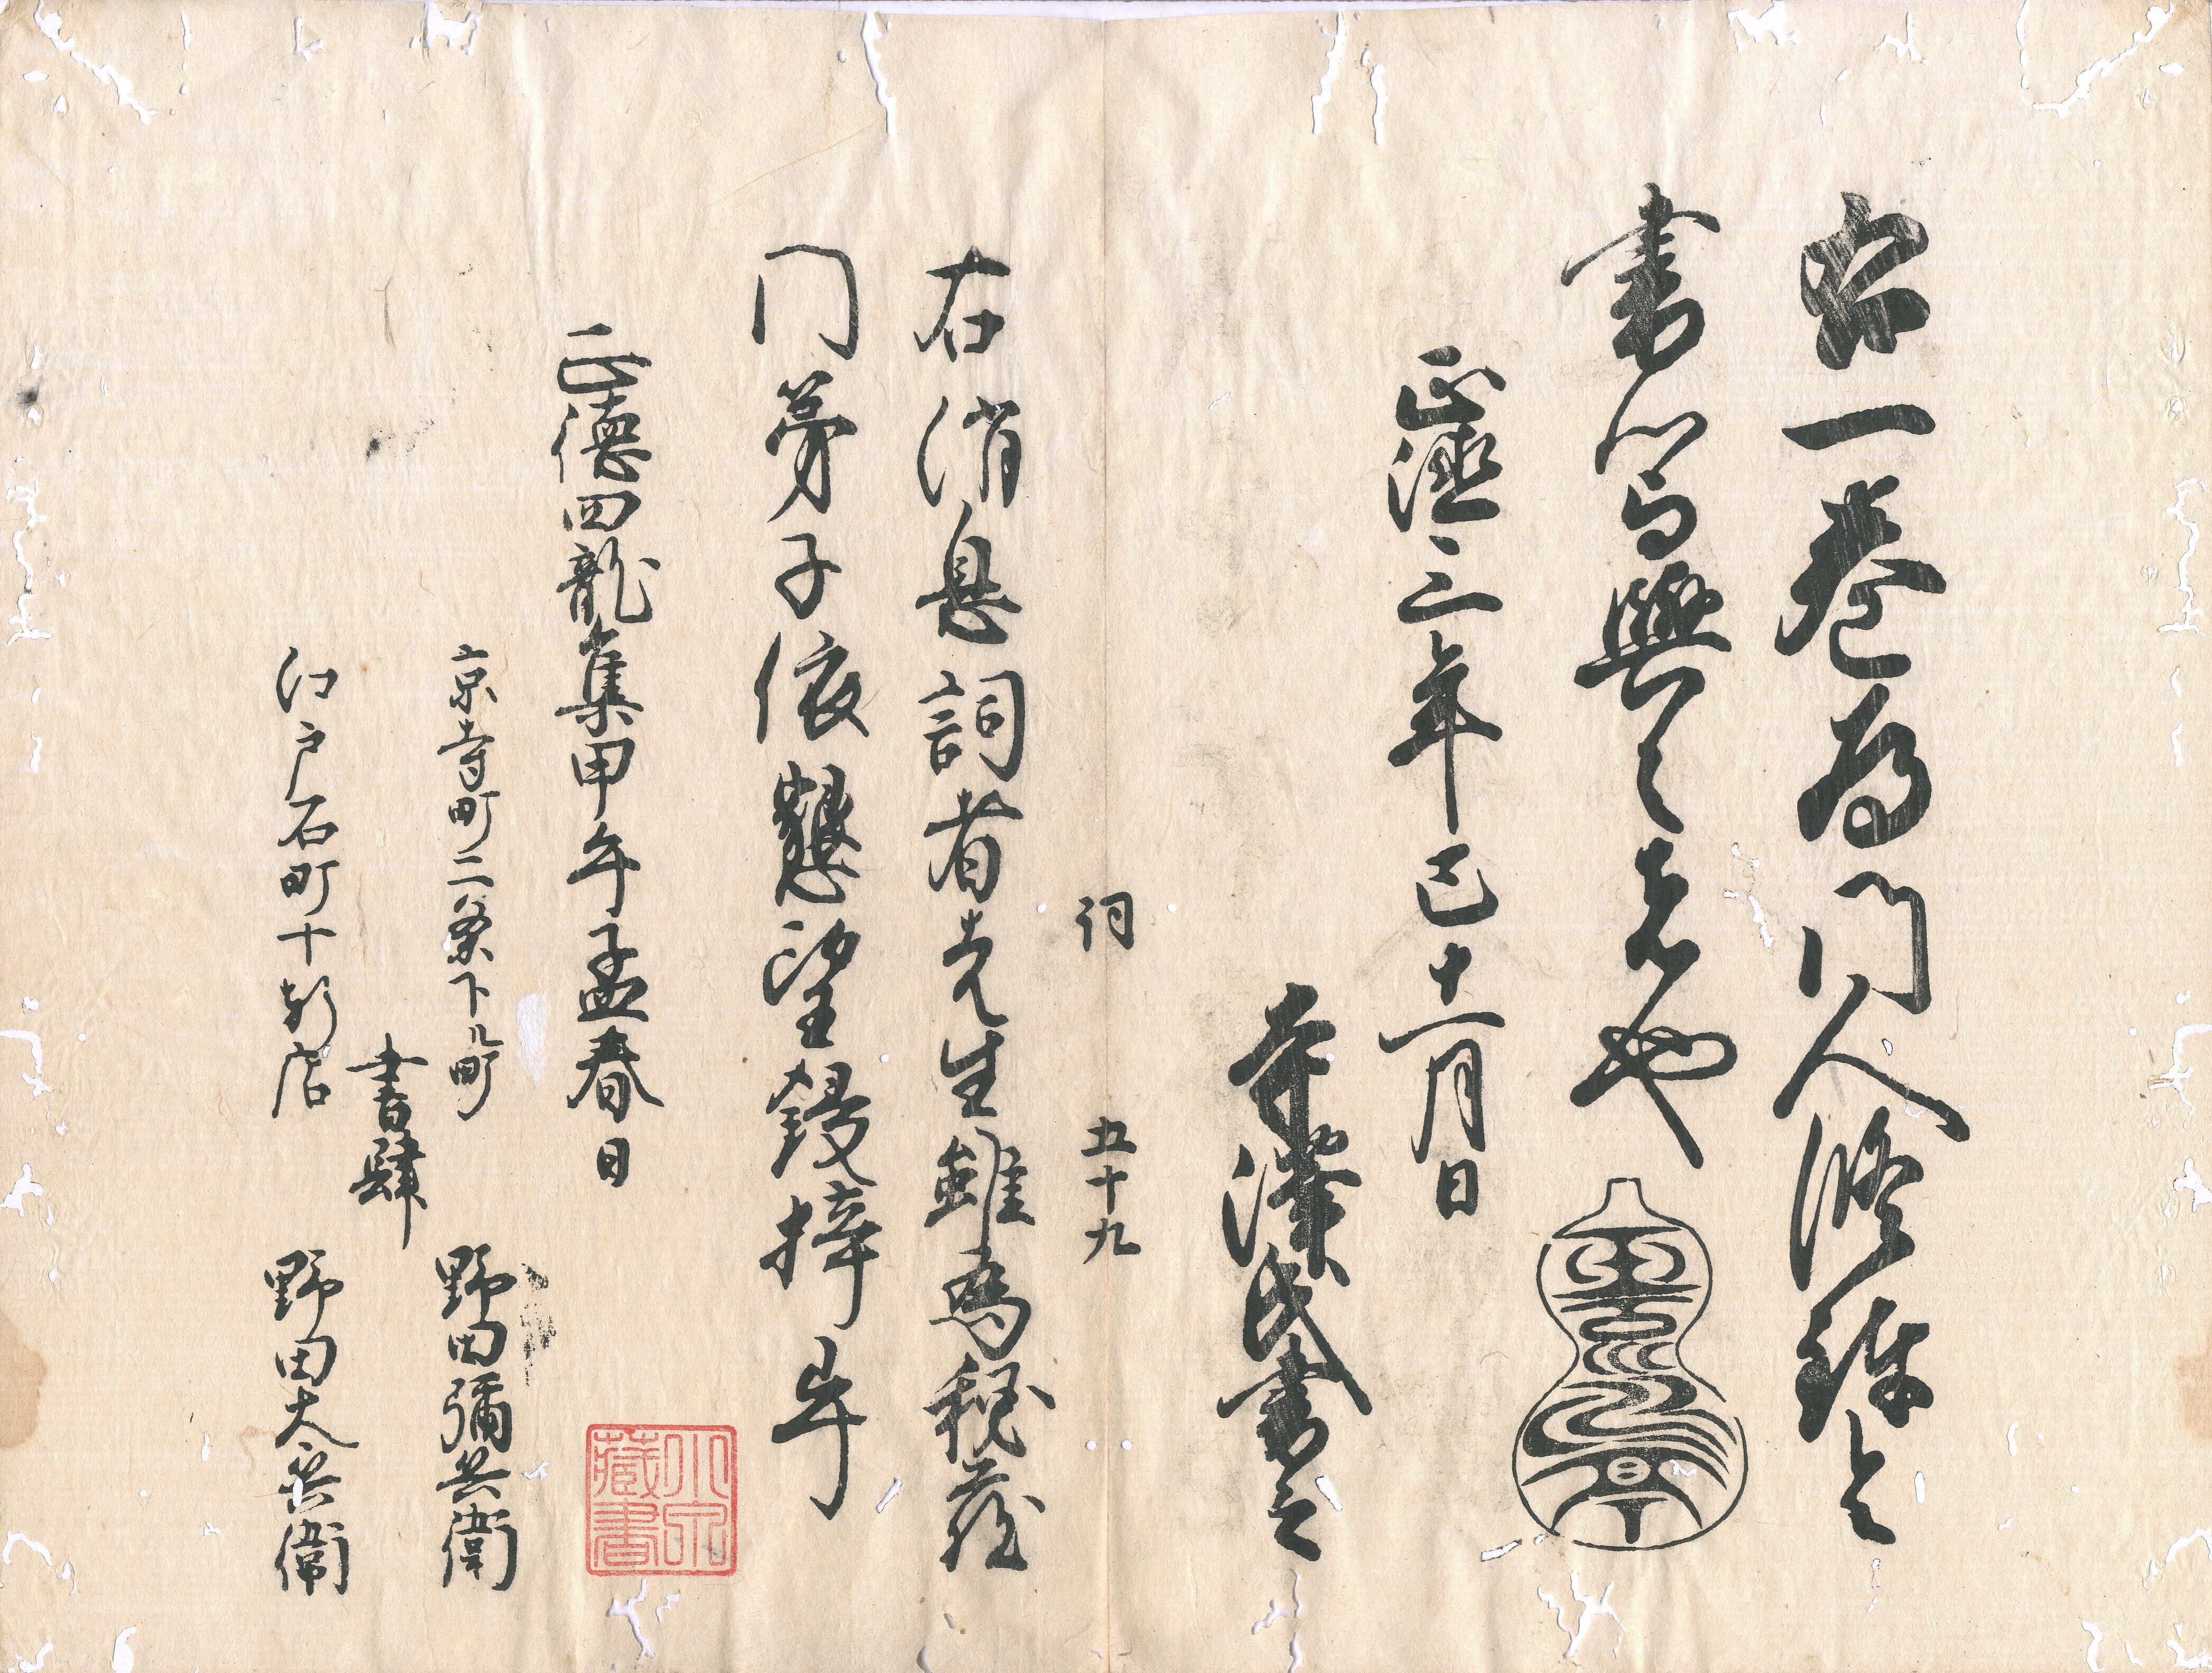 右一巻為門人脩錬之
書写與之者也
正徳三年巳十一月日
寺澤氏書之
詞 五十九
右消息詞者先生雖為秘蔵
門弟子依懇望鋟梓畢
正徳四龍集甲午孟春日
京寺町二条下ル町 野田彌兵衛
書肆
江戸石町十軒店 野田太兵衛
藏書